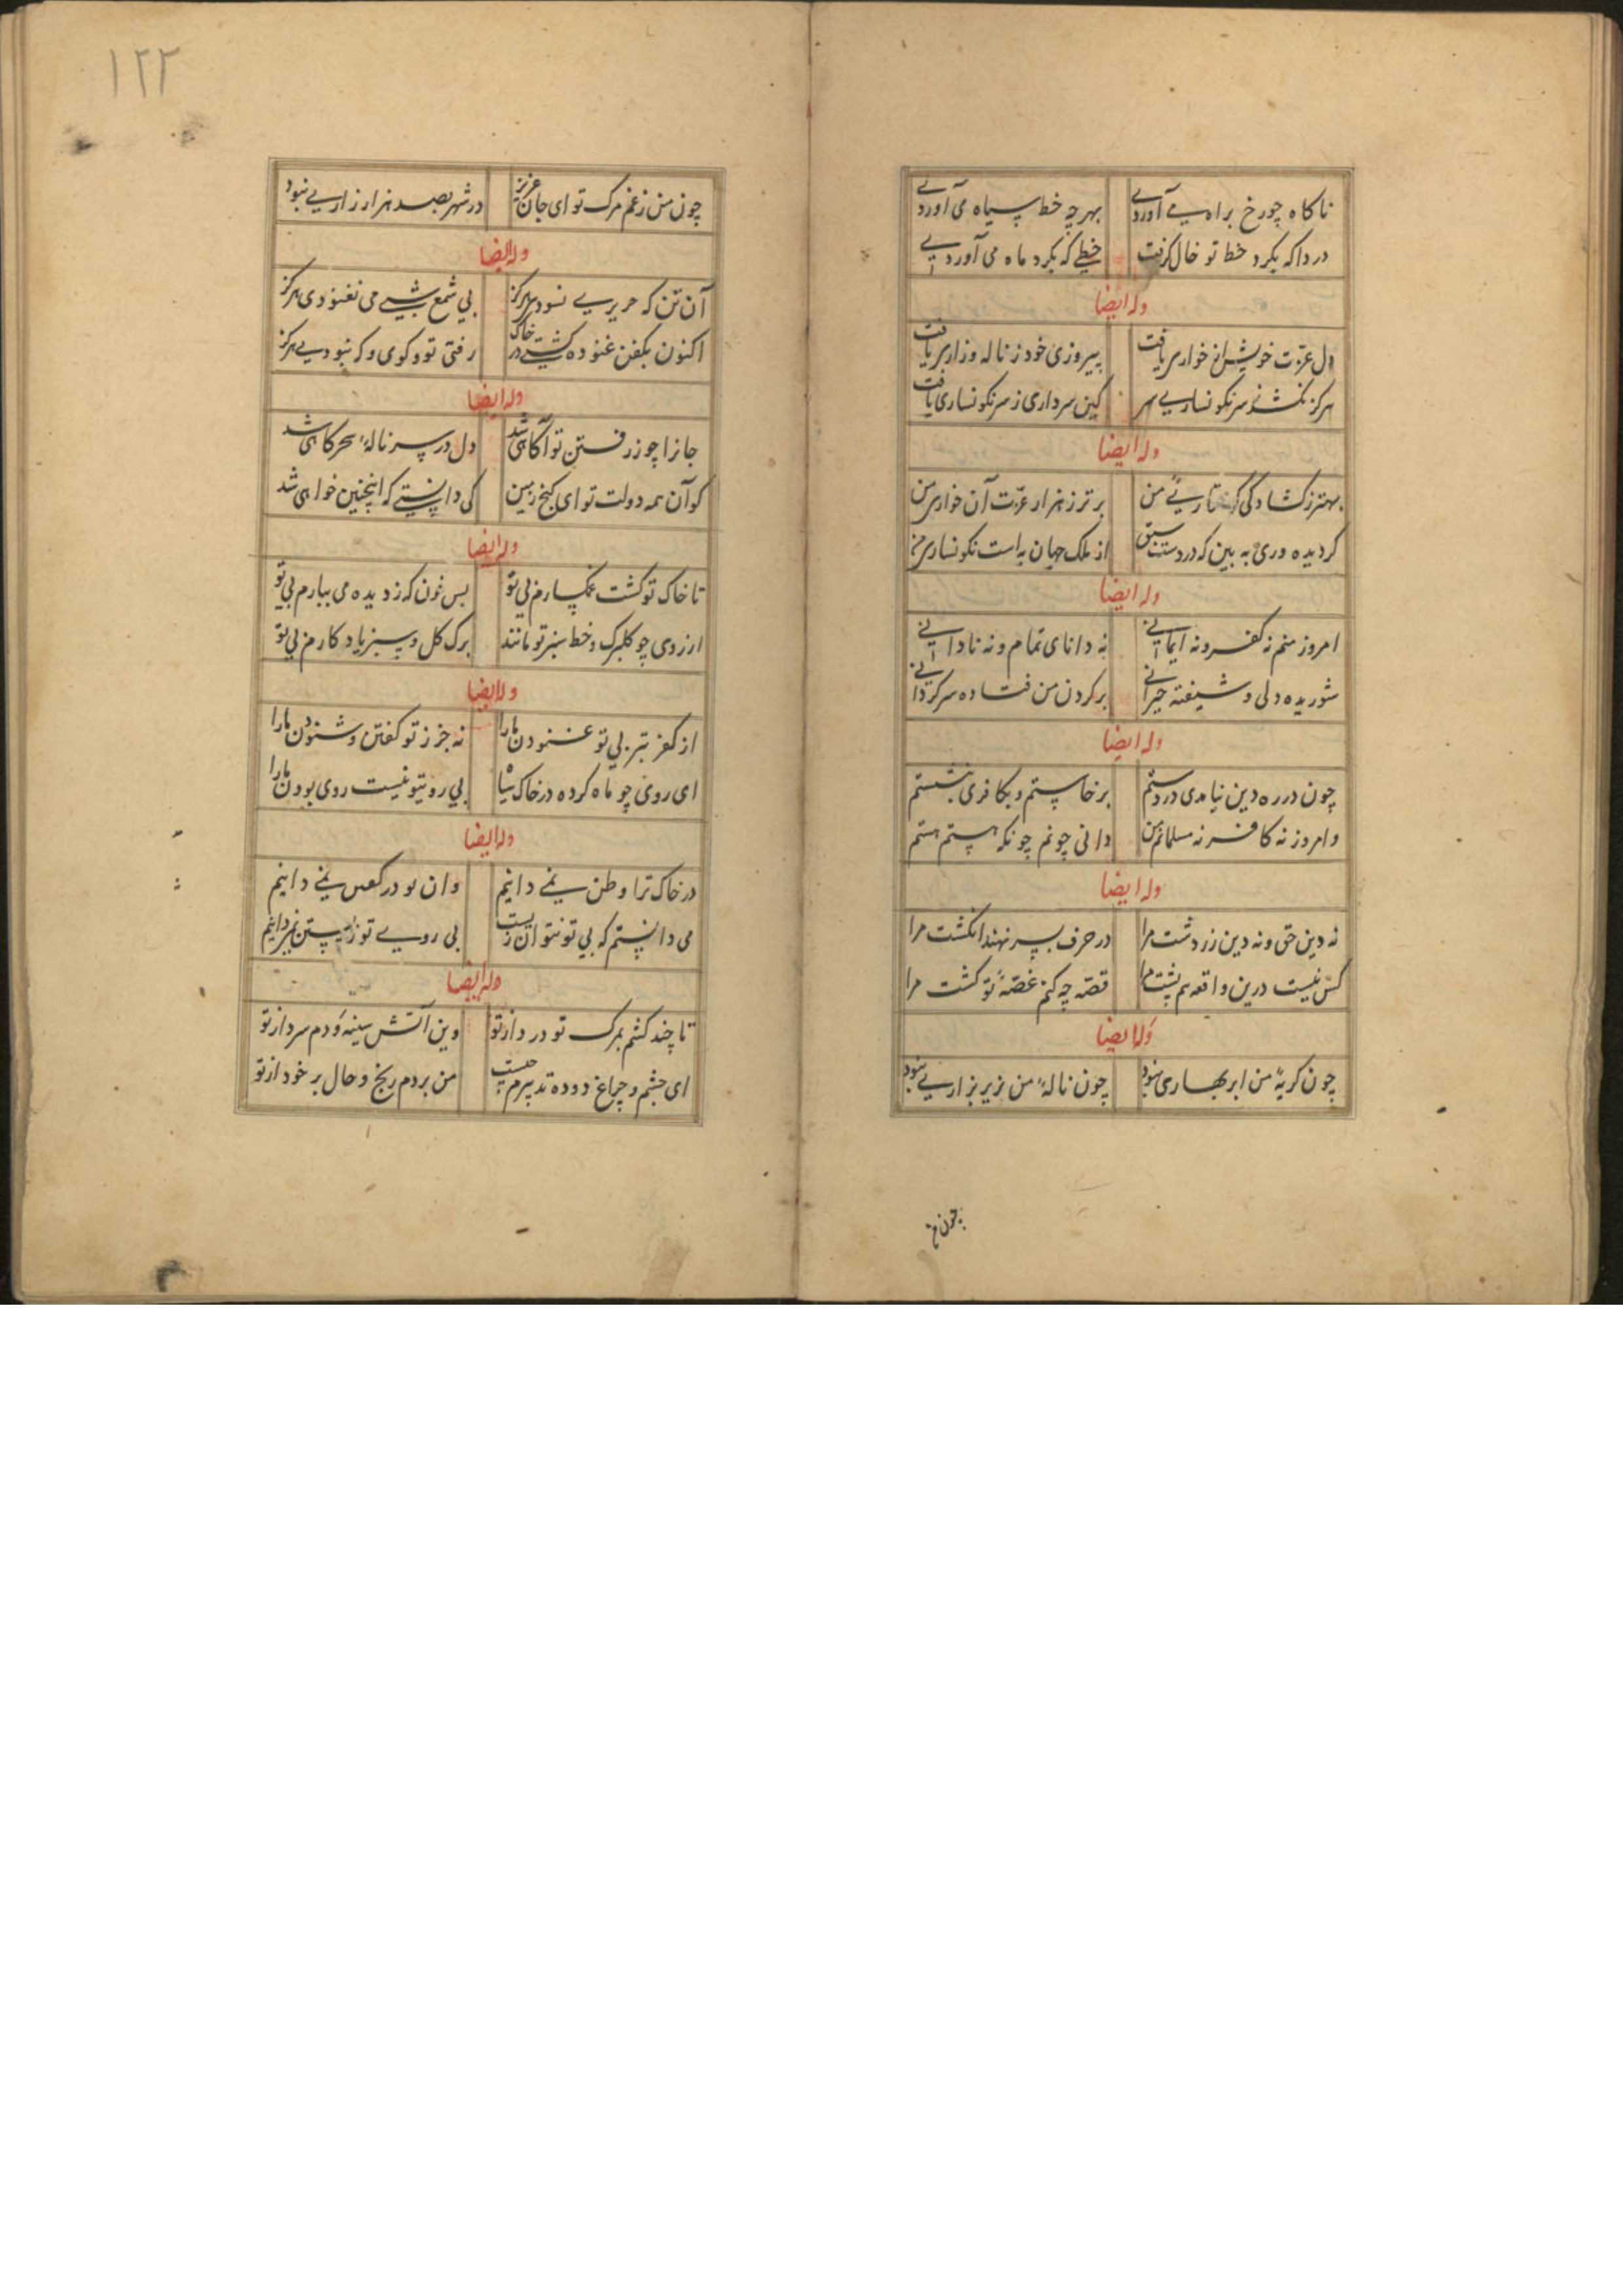 ناکاه چو رخ براه می آوردی بهرچه خط سیاه می آوردی
دردا که بکرد خط تو خال کرفت خطی که بکرد ماه می آوردی
وله ایضا
دل عزت خویش از خواری یافت پیروزی خود ز ناله و زاری یافت
هرکز نکشد ز سرنکوساری سر کین سرداری ز سرنکونساری یافت
وله ایضا
بهتر ز کشادگی گرفتاری من برتر ز هزار عزت آن خواری من
کر دیده وری به بین که در دست سبق از ملک جهان به است نکونساری من
وله ایضا
امروز منم نه کفر و نه ایمانی نه دانای تمام و نه نادانی
شوریده دلی و شیفته حیرانی بر کردن من فتاده سرکردانی
وله ایضا
چون در ره دین نیامدی در دستم برخاستم و بکافری بنشستم
و امروز نه کافر نه مسلمانم من دانی چونم چونکه هستم هستم
وله ایضا
نه دین حق و نه دین زردشت مرا در حرف بسر نهند انکشت مرا
کس نیست درین واقعه هم پشت مرا قصه چه کنم غصهٔ تو کشت مرا
وله ایضا
چون کریهٔ من ابر بهاری نبود چون نالهٔ من زیر بزاری نبود
چون من
۱۲۲
چون من ز غم مرک تو ای جان عزیز در شهر بصد هزار زاری نبود
وله ایضا
آن تن که حریری نسود هرکز بی شمع شبی می نغنودی هرکز
اکنون بکفن غنوده کشتی در خاک رفتی تو و کوی وکه نبودی هرکز
وله ایضا
جانرا چو ز رفتن تو آکاهی شد دل در سر نالهٔ سحرکاهی شد
کو آن همه دولت تو ای کنج زمین کی دانستی که اینچنین خواهی شد
وله ایضا
تا خاک تو کشت غمکسارم بی تو بس خون که ز دیده می ببارم بی تو
از روی چو کلبرک و خط سبز تو ماند برک کل و سبز یادکارم بی تو
وله ایضا
از کفر بتر بی تو غنودن ما را نه جز ز تو کفتن و شنودن ما را
ای روی چو ماه کرده در خاک سیاه بی روی تو نیست روی بودن ما را
وله ایضا
در خاک ترا وطن نمی دانیم وان تو در کفن نمی دانیم
می دانستم که بی تو نتوان زیست بی روی تو زیستن نمی دانیم
وله ایضا
تا چند کشم بمرک تو درد از تو وین آتش سینه و دم سرد از تو
ای چشم و چراغ دوده تدبیرم چیست من بردم رنج و حال برخورد از تو